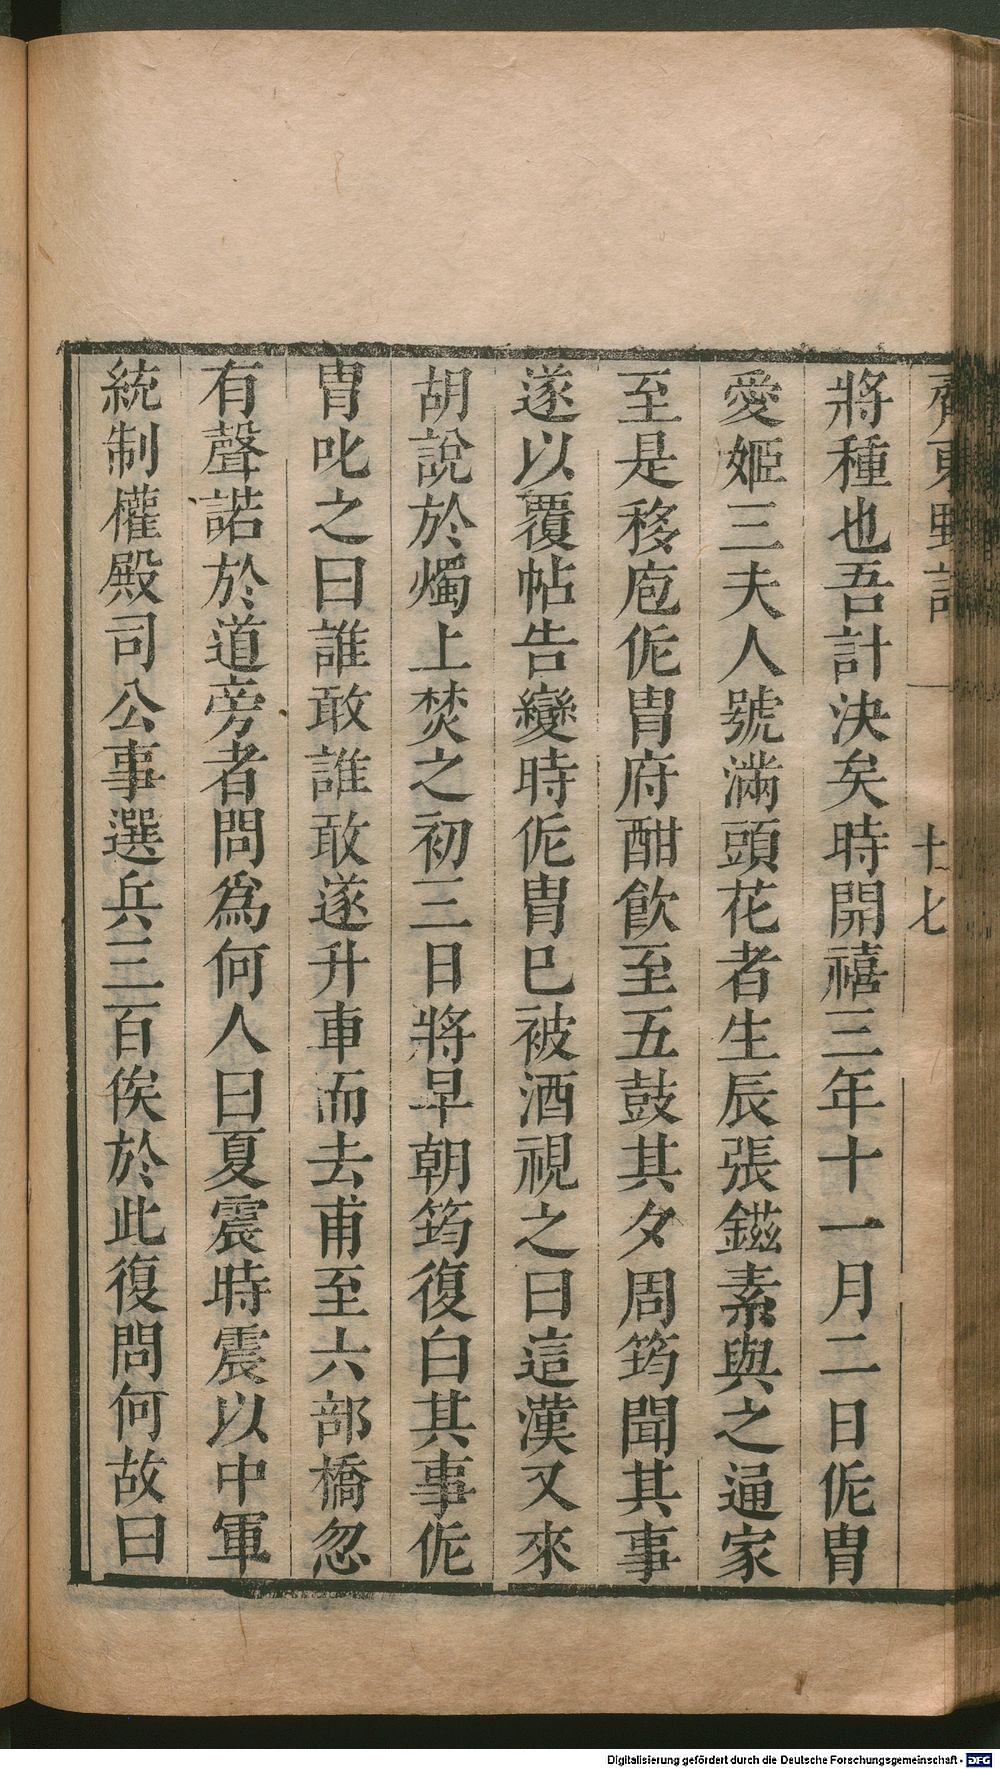 齊東野語 十七
將種也吾計決矣時開禧三年十一月二日侂胄
愛姬三夫人號滿頭花者生辰張鎡素與之通家
至是移庖侂胄府酣飲至五鼓其夕周筠聞其事
遂以覆帖告變時侂胄已被酒視之曰這漢又來
胡說於燭上焚之初三日將早朝筠復白其事侂
胄叱之曰誰敢誰敢遂升車而去甫至六部橋忽
有聲諾於道旁者問爲何人曰夏震時震以中軍
統制權殿司公事選兵三百俟於此復問何故曰
Digitalisierung gefördert durch die Deutsche Forschungsgemeinschaft - DFG